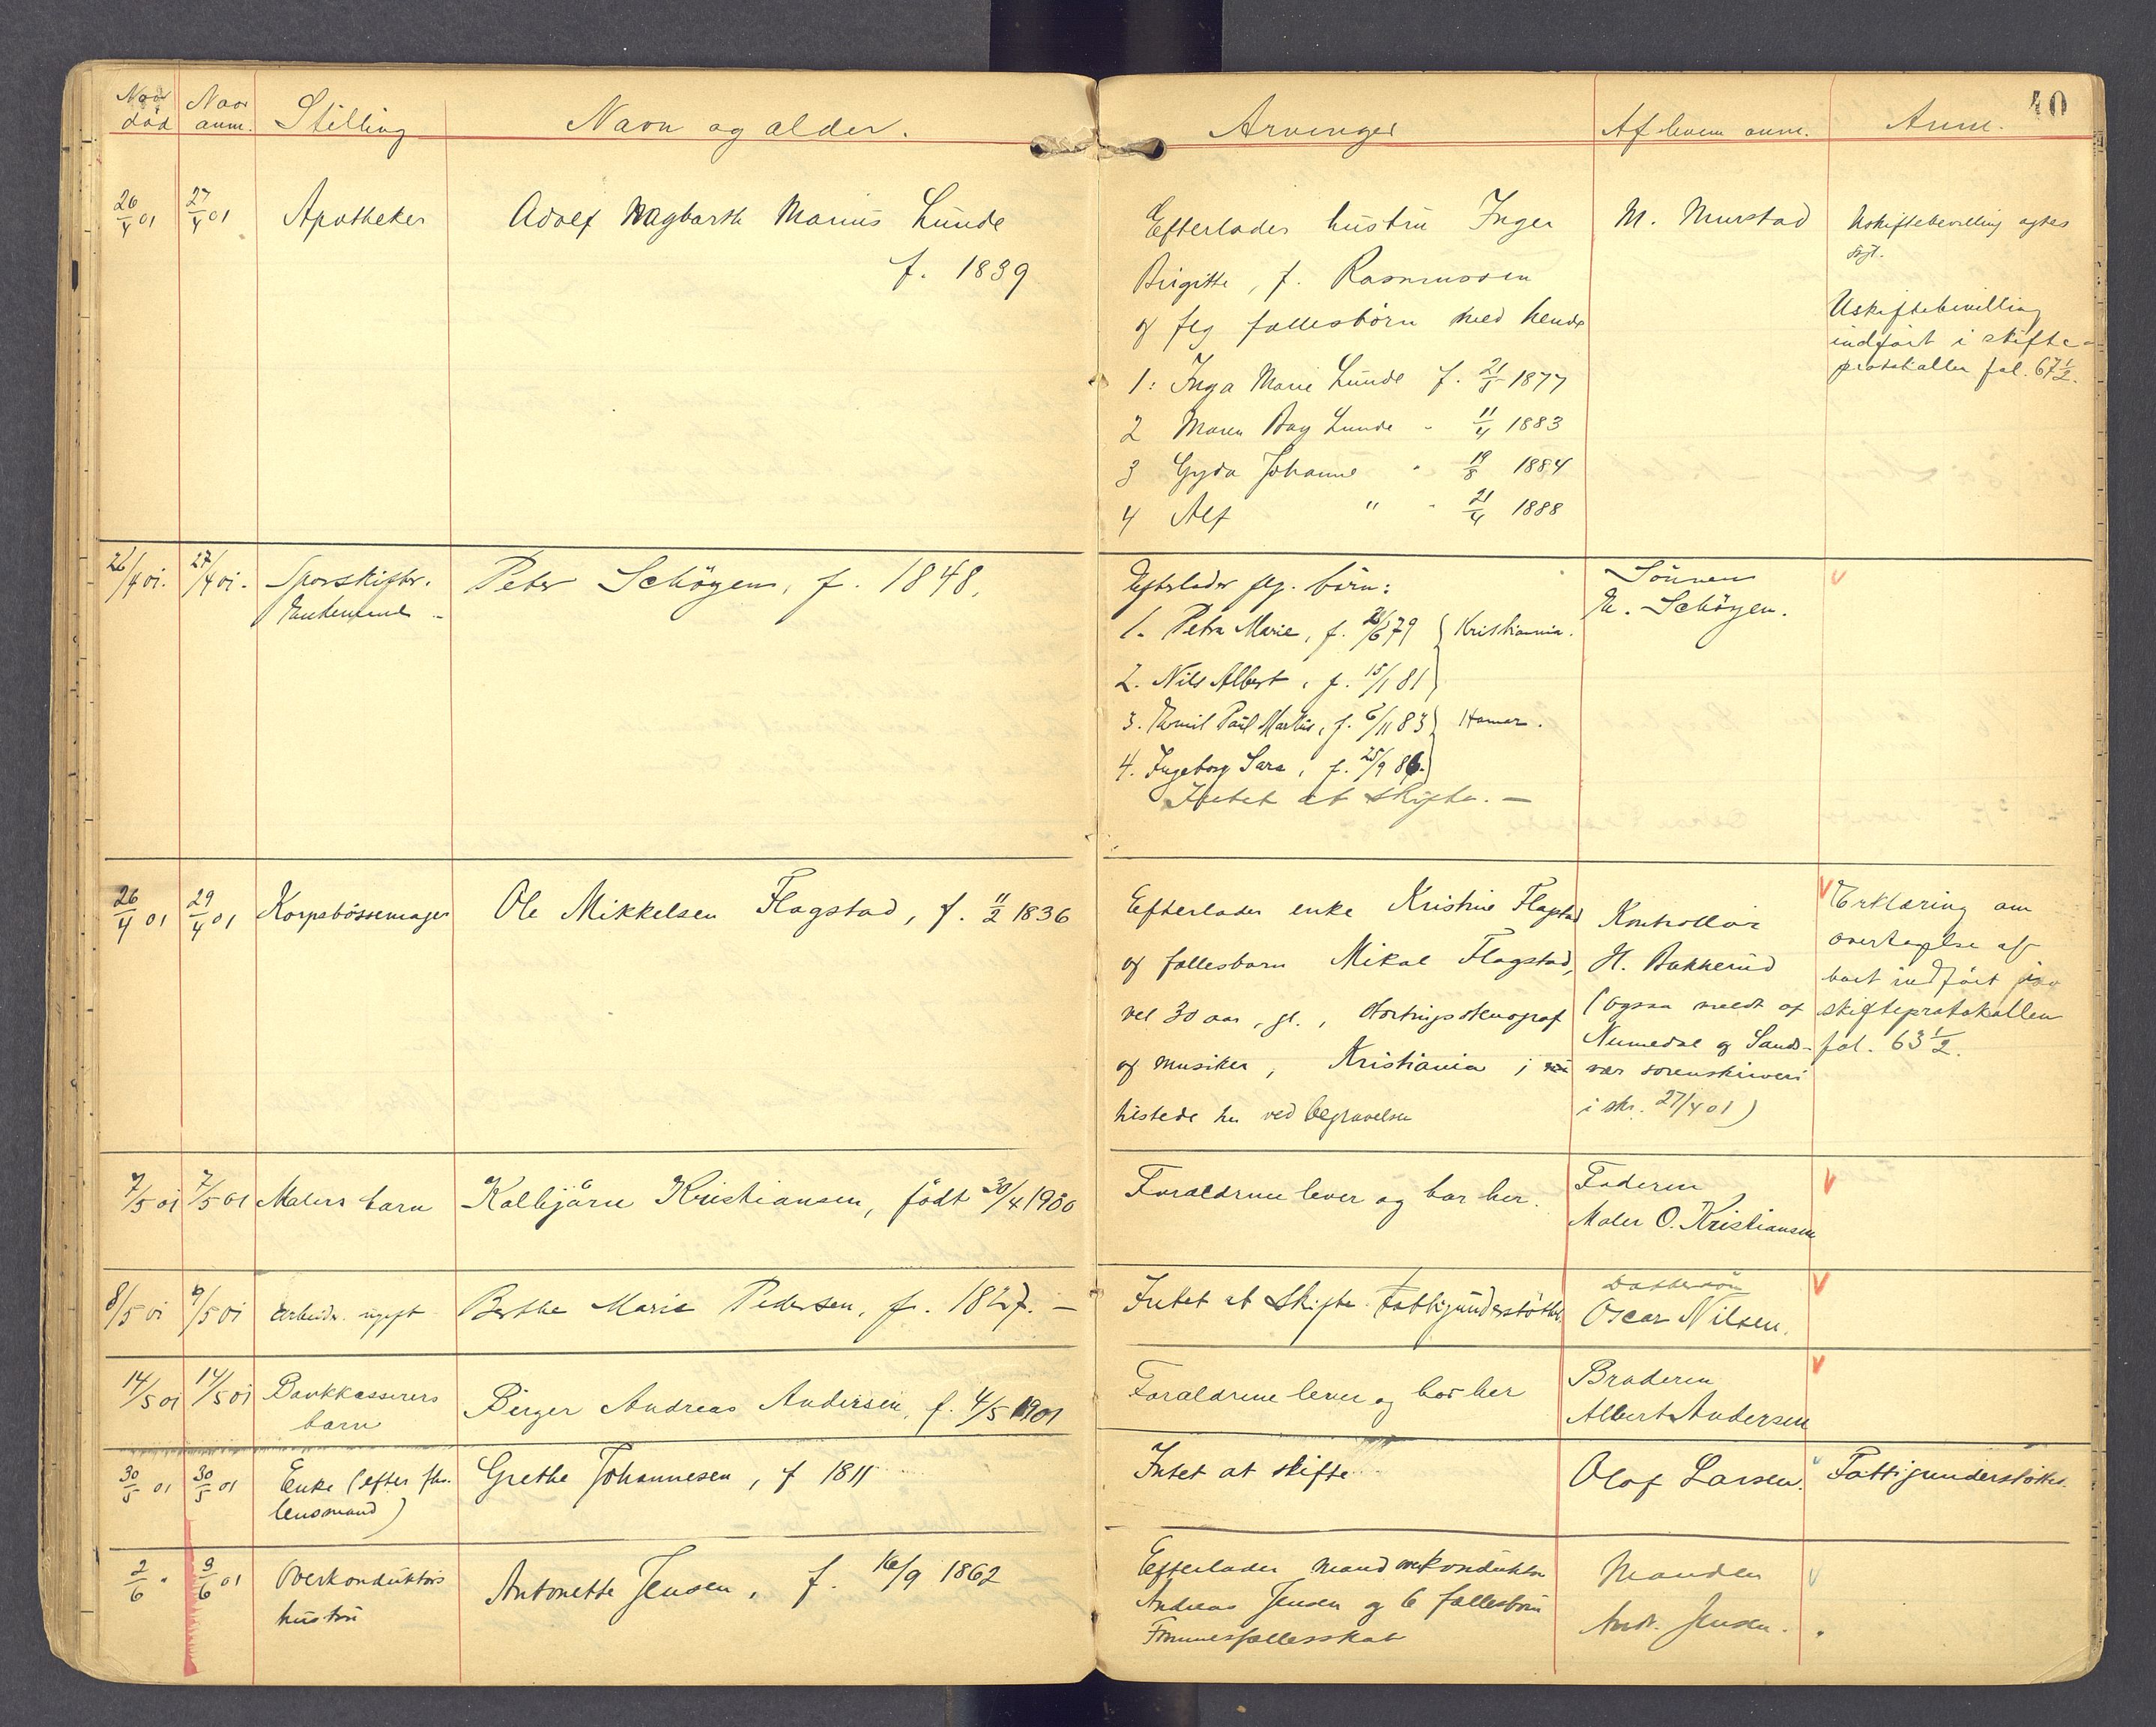 40
Naar død
Naar anm.
Stilling
Navn og alder.
Arvinger
Af hvem anm.
Anm.
26/4 01
27/4 01
Apotheker
Adolf Hagbarth Marius Lunde
f. 1839
Efterlader hustru Inger
Birgitte, f. Rasmussen
og flg fællesbørn med hende
1: Inga Marie Lunde f. 21/5 1877
2 Maren Dag Lunde - 11/4 1883
3 Gyda Johanne - 19/8 1884
4 Alf " - 21/4 1888
M. Murstad
Uskiftebevilling agtes
søgt.
Uskiftebevilling
indført i skifte-
protokollen fol. 67 1/2.
26/4 01.
27/4 01.
Sporskifter.
Enkemand -
Peter Schøyen, f. 1848.
Efterlader flg. børn:
1. Petra Marie, f. 21/6 79 } Kristiania.
2. Nils Albert, f. 15/1 81
3. Emil Paul Markus, f. 6/11 83 } Hamar.
4. Ingeborg Sara, f. 25/9 86.
Intet at skifte. -
Sønnen
N. Schøyen.
26/4 01
29/4 01
Korpsbøssemager
Ole Mikkelsen Flagstad, f. 11/2 1836
Efterlader enke Kristine Flagstad
og fællesbarn Mikal Flagstad,
vel 30 aar, gl., stortingsstenograf
og musiker, Kristiania;
tilstede her ved begravelsen
Kontrollør
H. Bakkerud
(ogsaa meldt af
Numedal og Sands-
vær sorenskriveri
i skr. 27/4 01)
Erklæring om
overtagelse af
boet indført i
skifteprotokollen
fol. 63 1/2.
7/5 01
7/5 01
Malers barn
Kolbjørn Kristiansen, født 30/4 1900
Forældrene lever og bor her.
Faderen
Maler O. Kristiansen
8/5 01
9/5 01
arbeider. ugift
Berthe Marie Pedersen, f. 1827. -
Intet at skifte. Fattigunderstøttet.
Dattersøn
Oscar Nilsen.
14/5 01
14/5 01
Bankkasserers
barn
Birger Andreas Andersen, f. 4/5 1901
Forældrene lever og bor her
Broderen
Albert Andersen
30/5 01
30/5 01
Enke (efter fhv.
lensmand)
Grethe Johannesen, f 1811
Intet at skifte
Olaf Larsen.
Fattigunderstøttet.
2/6 "
3/6 01
Overkonduktørs
hustru
Antonette Jensen, f. 16/9 1862
Efterlader mand overkonduktør
Andreas Jensen og 6 fællesbørn
Formuesfællesskab
Manden
Andr. Jensen.